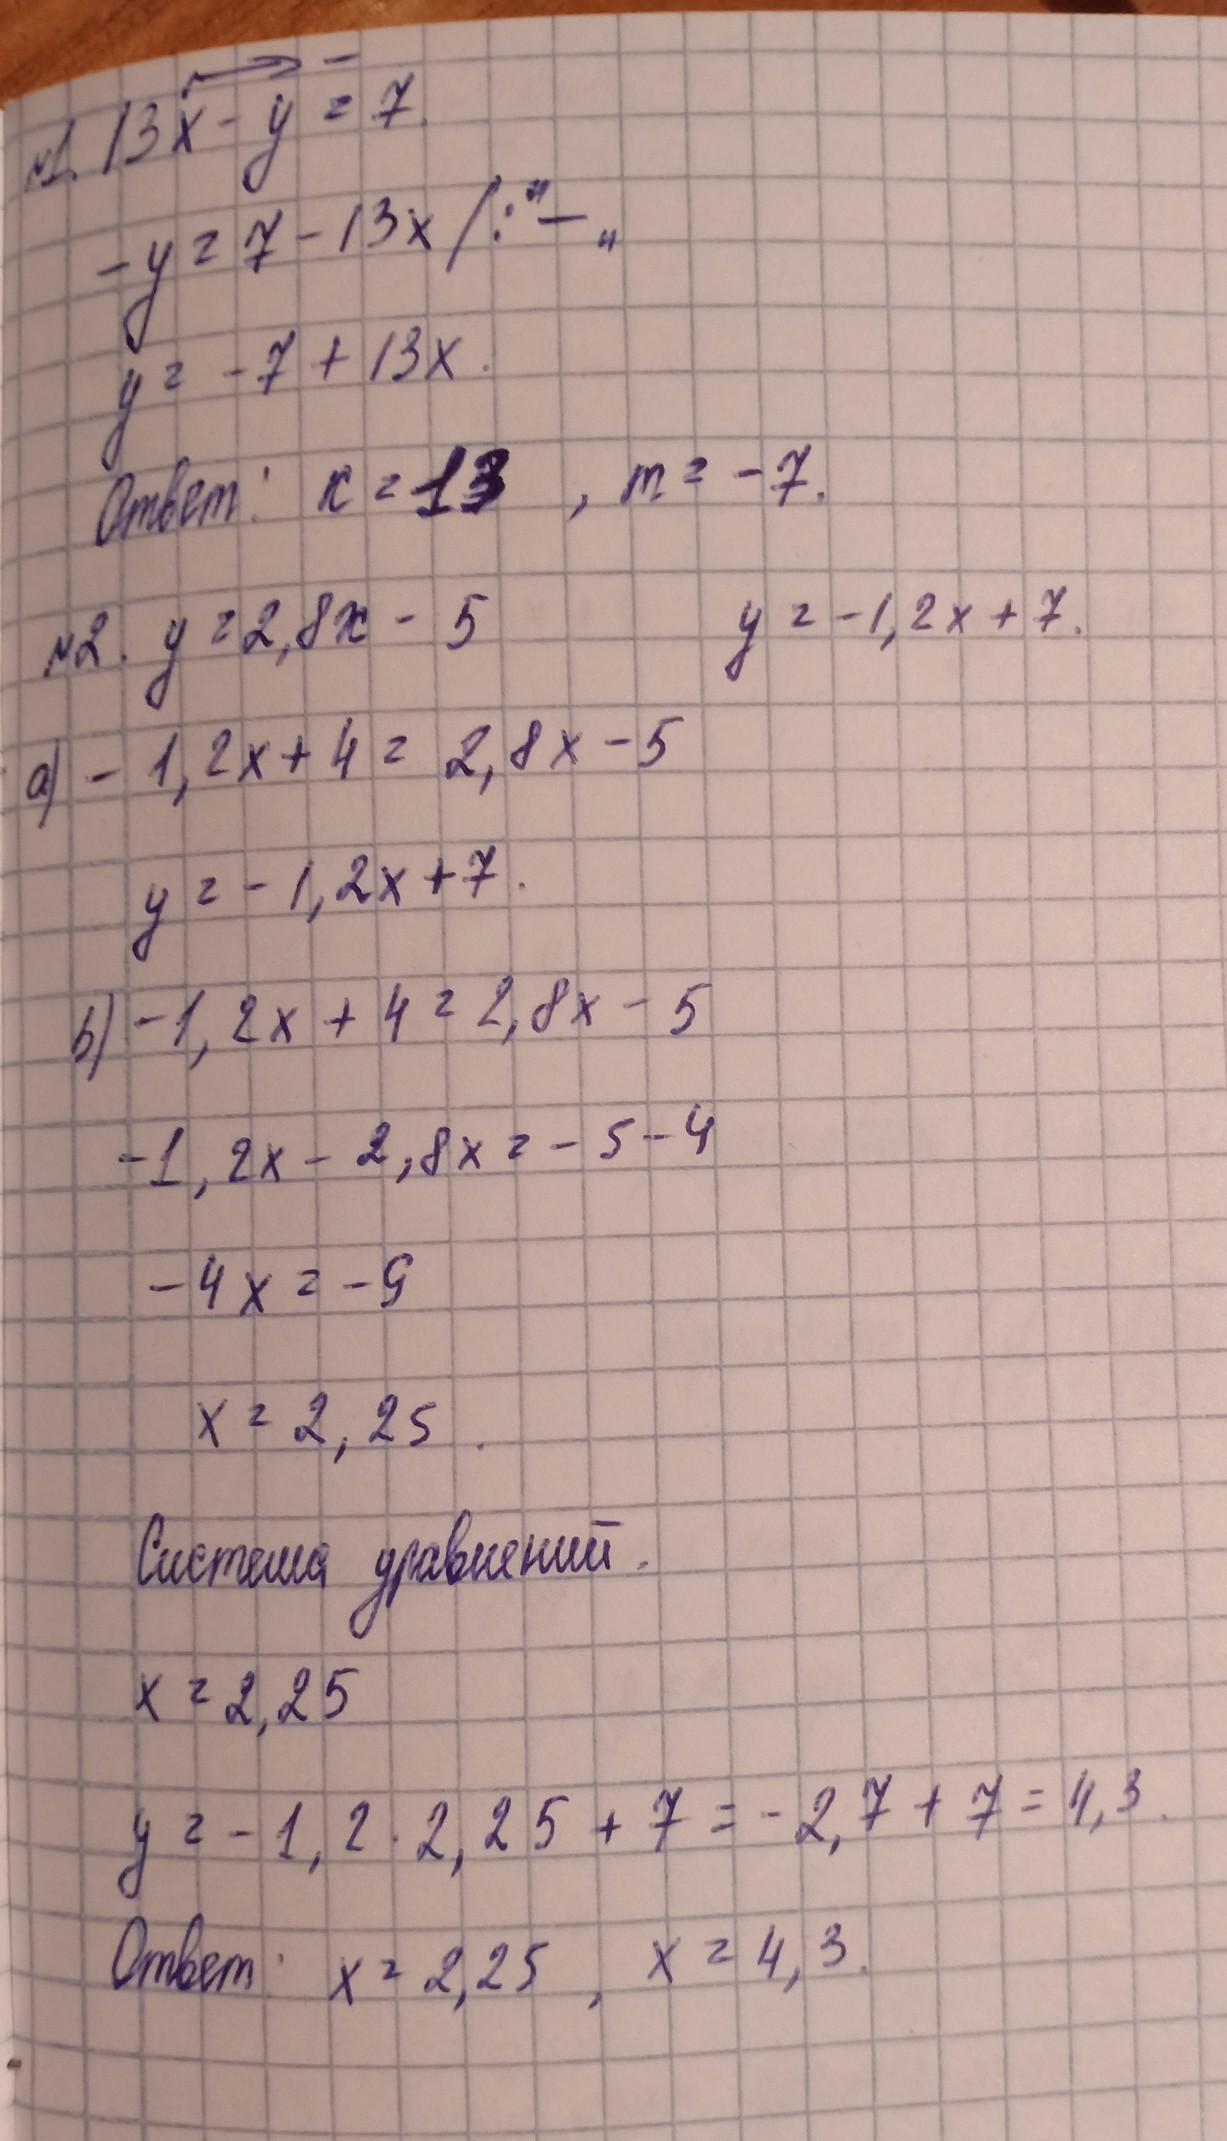 №1. 13x - y = 7.
-y = 7 - 13x /:"-"
y = -7 + 13x.
Ответ: к = 13, m = -7.
№2. y = 2,8x - 5 y = -1,2x + 7.
a) -1,2x + 4 = 2,8x - 5
y = -1,2x + 7.
b) -1,2x + 4 = 2,8x - 5
-1,2x - 2,8x = -5 - 4
-4x = -9
x = 2,25.
Система уравнений.
x = 2,25
y = -1,2 · 2,25 + 7 = -2,7 + 7 = 4,3.
Ответ: x = 2,25, x = 4,3.